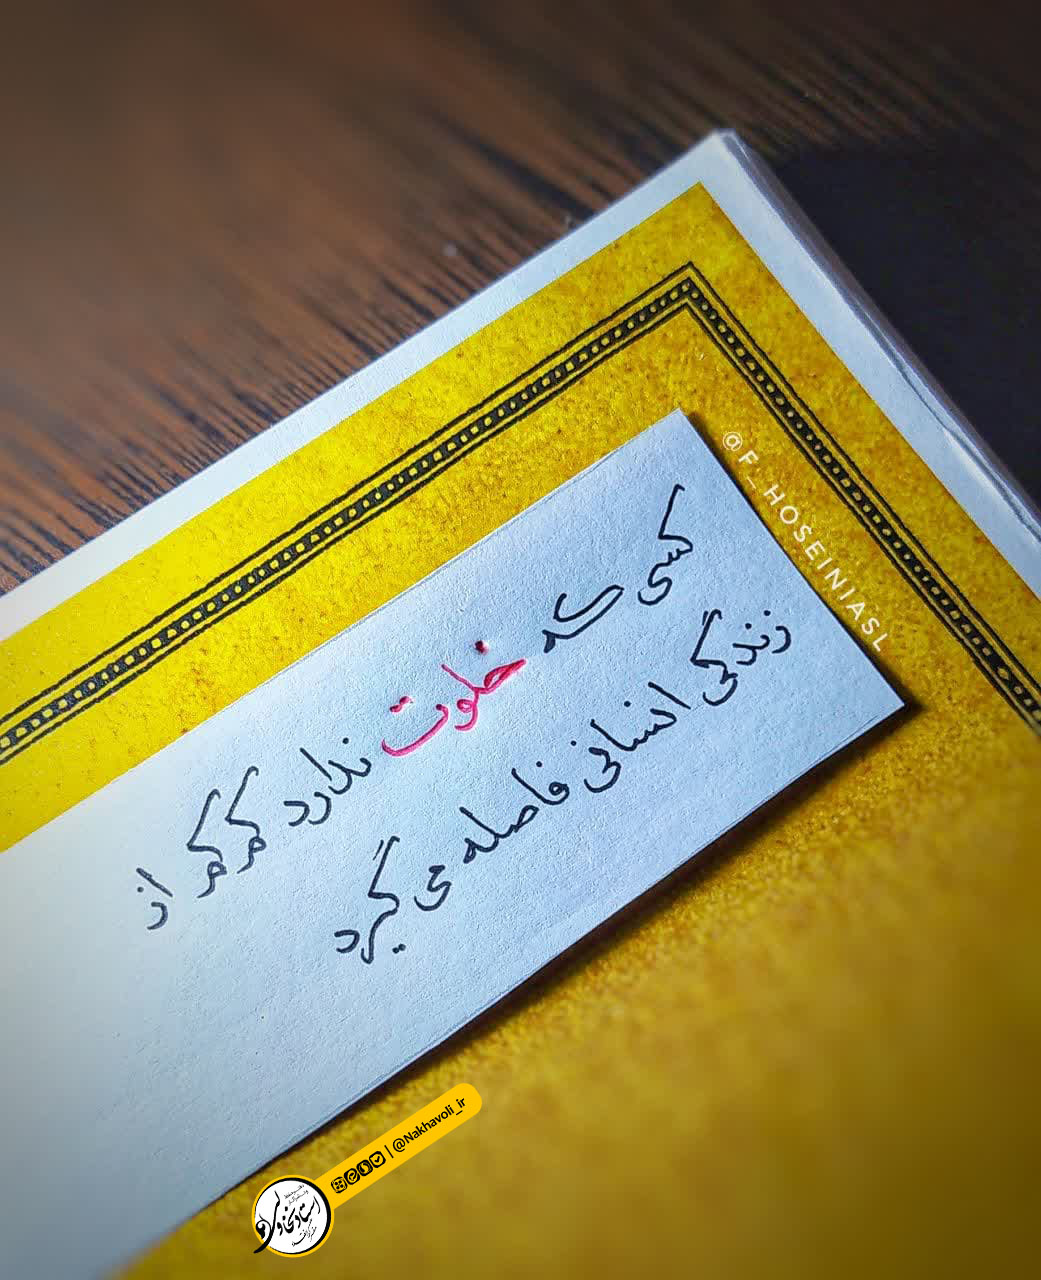 کسی که خلوت ندارد کم کم از
زندگی انسانی فاصله می گیرد
@F_HOSEINIASL
| @Nakhavoli_ir
استاد نخاولی